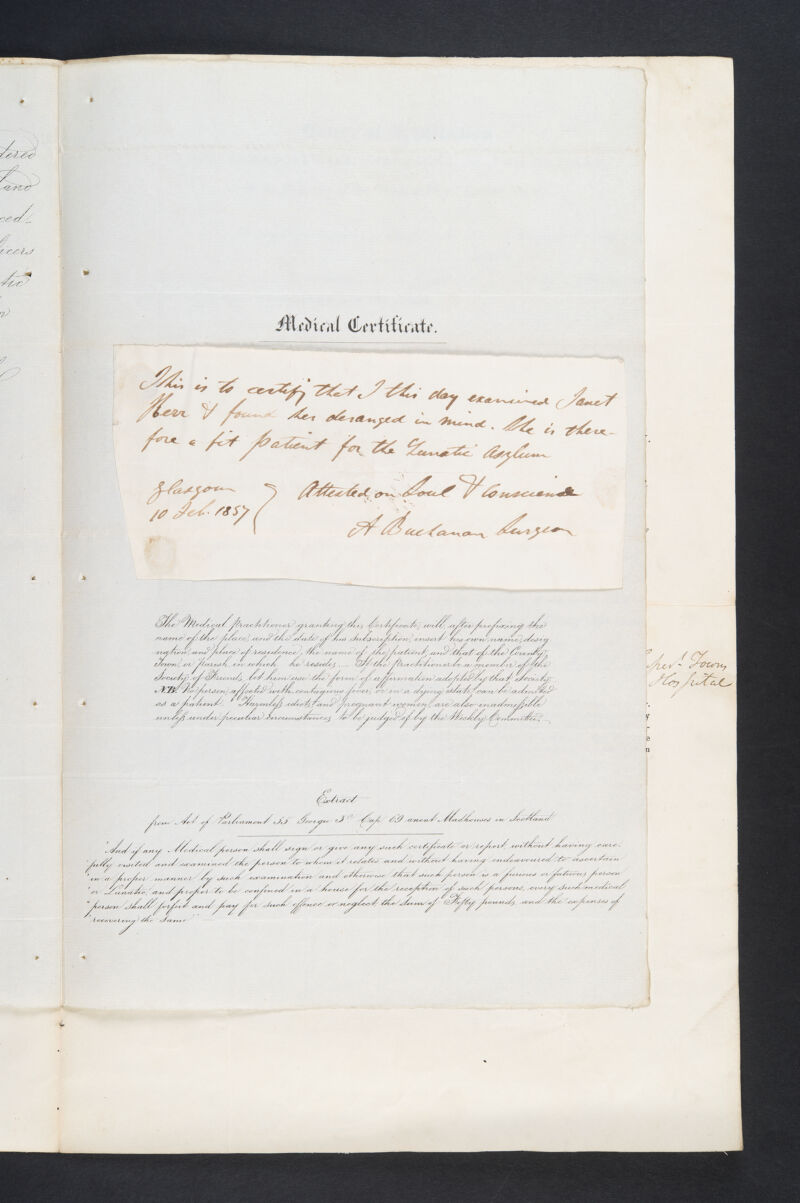 tered
land
ced-
ficers
tic
Medical Certificate.
This is to certify that I this day examined Janet
Kerr & found her deranged in mind. She is there-
fore a fit patient for the Lunatic Asylum
Glasgow
10 Feb. 1857
Attested on Soul & Conscience
A Buchanan Surgeon
The Medical Practitioner granting this Certificate, will, after prefixing the
name of the place, and the date of his subscription, insert his own name, desig
nation, and place of residence, the name of the patient, and that of the County,
Town, or Parish in which he resides. If the Practitioner be a member of the
Society of Friends, let him use the form of affirmation adopted by that Society.
N.B. No person affected with contagious fever, or in a dying state, can be admitted
as a patient. Harmless idiots and pregnant women, are also inadmissible
unless under peculiar circumstances to be judged of by the Weekly Committee.
Town's
Hospital
Extract
from Act of Parliament 55 George 3d Cap 69 anent Madhouses in Scotland
"And if any Medical person shall sign or give any such certificate or report without having care-
"fully visited and examined the person to whom it relates and without having endeavoured to ascertain
"in a proper manner by such examination and otherwise that such person is a furious or fatuous person
"or Lunatic, and proper to be confined in a house for the reception of such persons, every such medical
"person shall forfeit and pay for such offence or neglect, the Sum of Fifty pounds and the expenses of
"recovering the same"